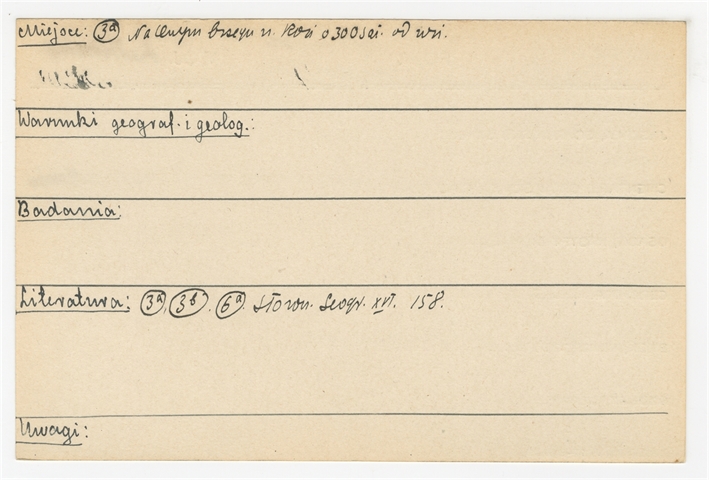 Miejsce: 3a Na lewym brzegu n. Rosi o 300 saż. od wsi.
Warunki geograf. i geolog.:
Badania:
Literatura: 3a, 3b. 6a. Słown. Geogr. XVI. 158.
Uwagi: